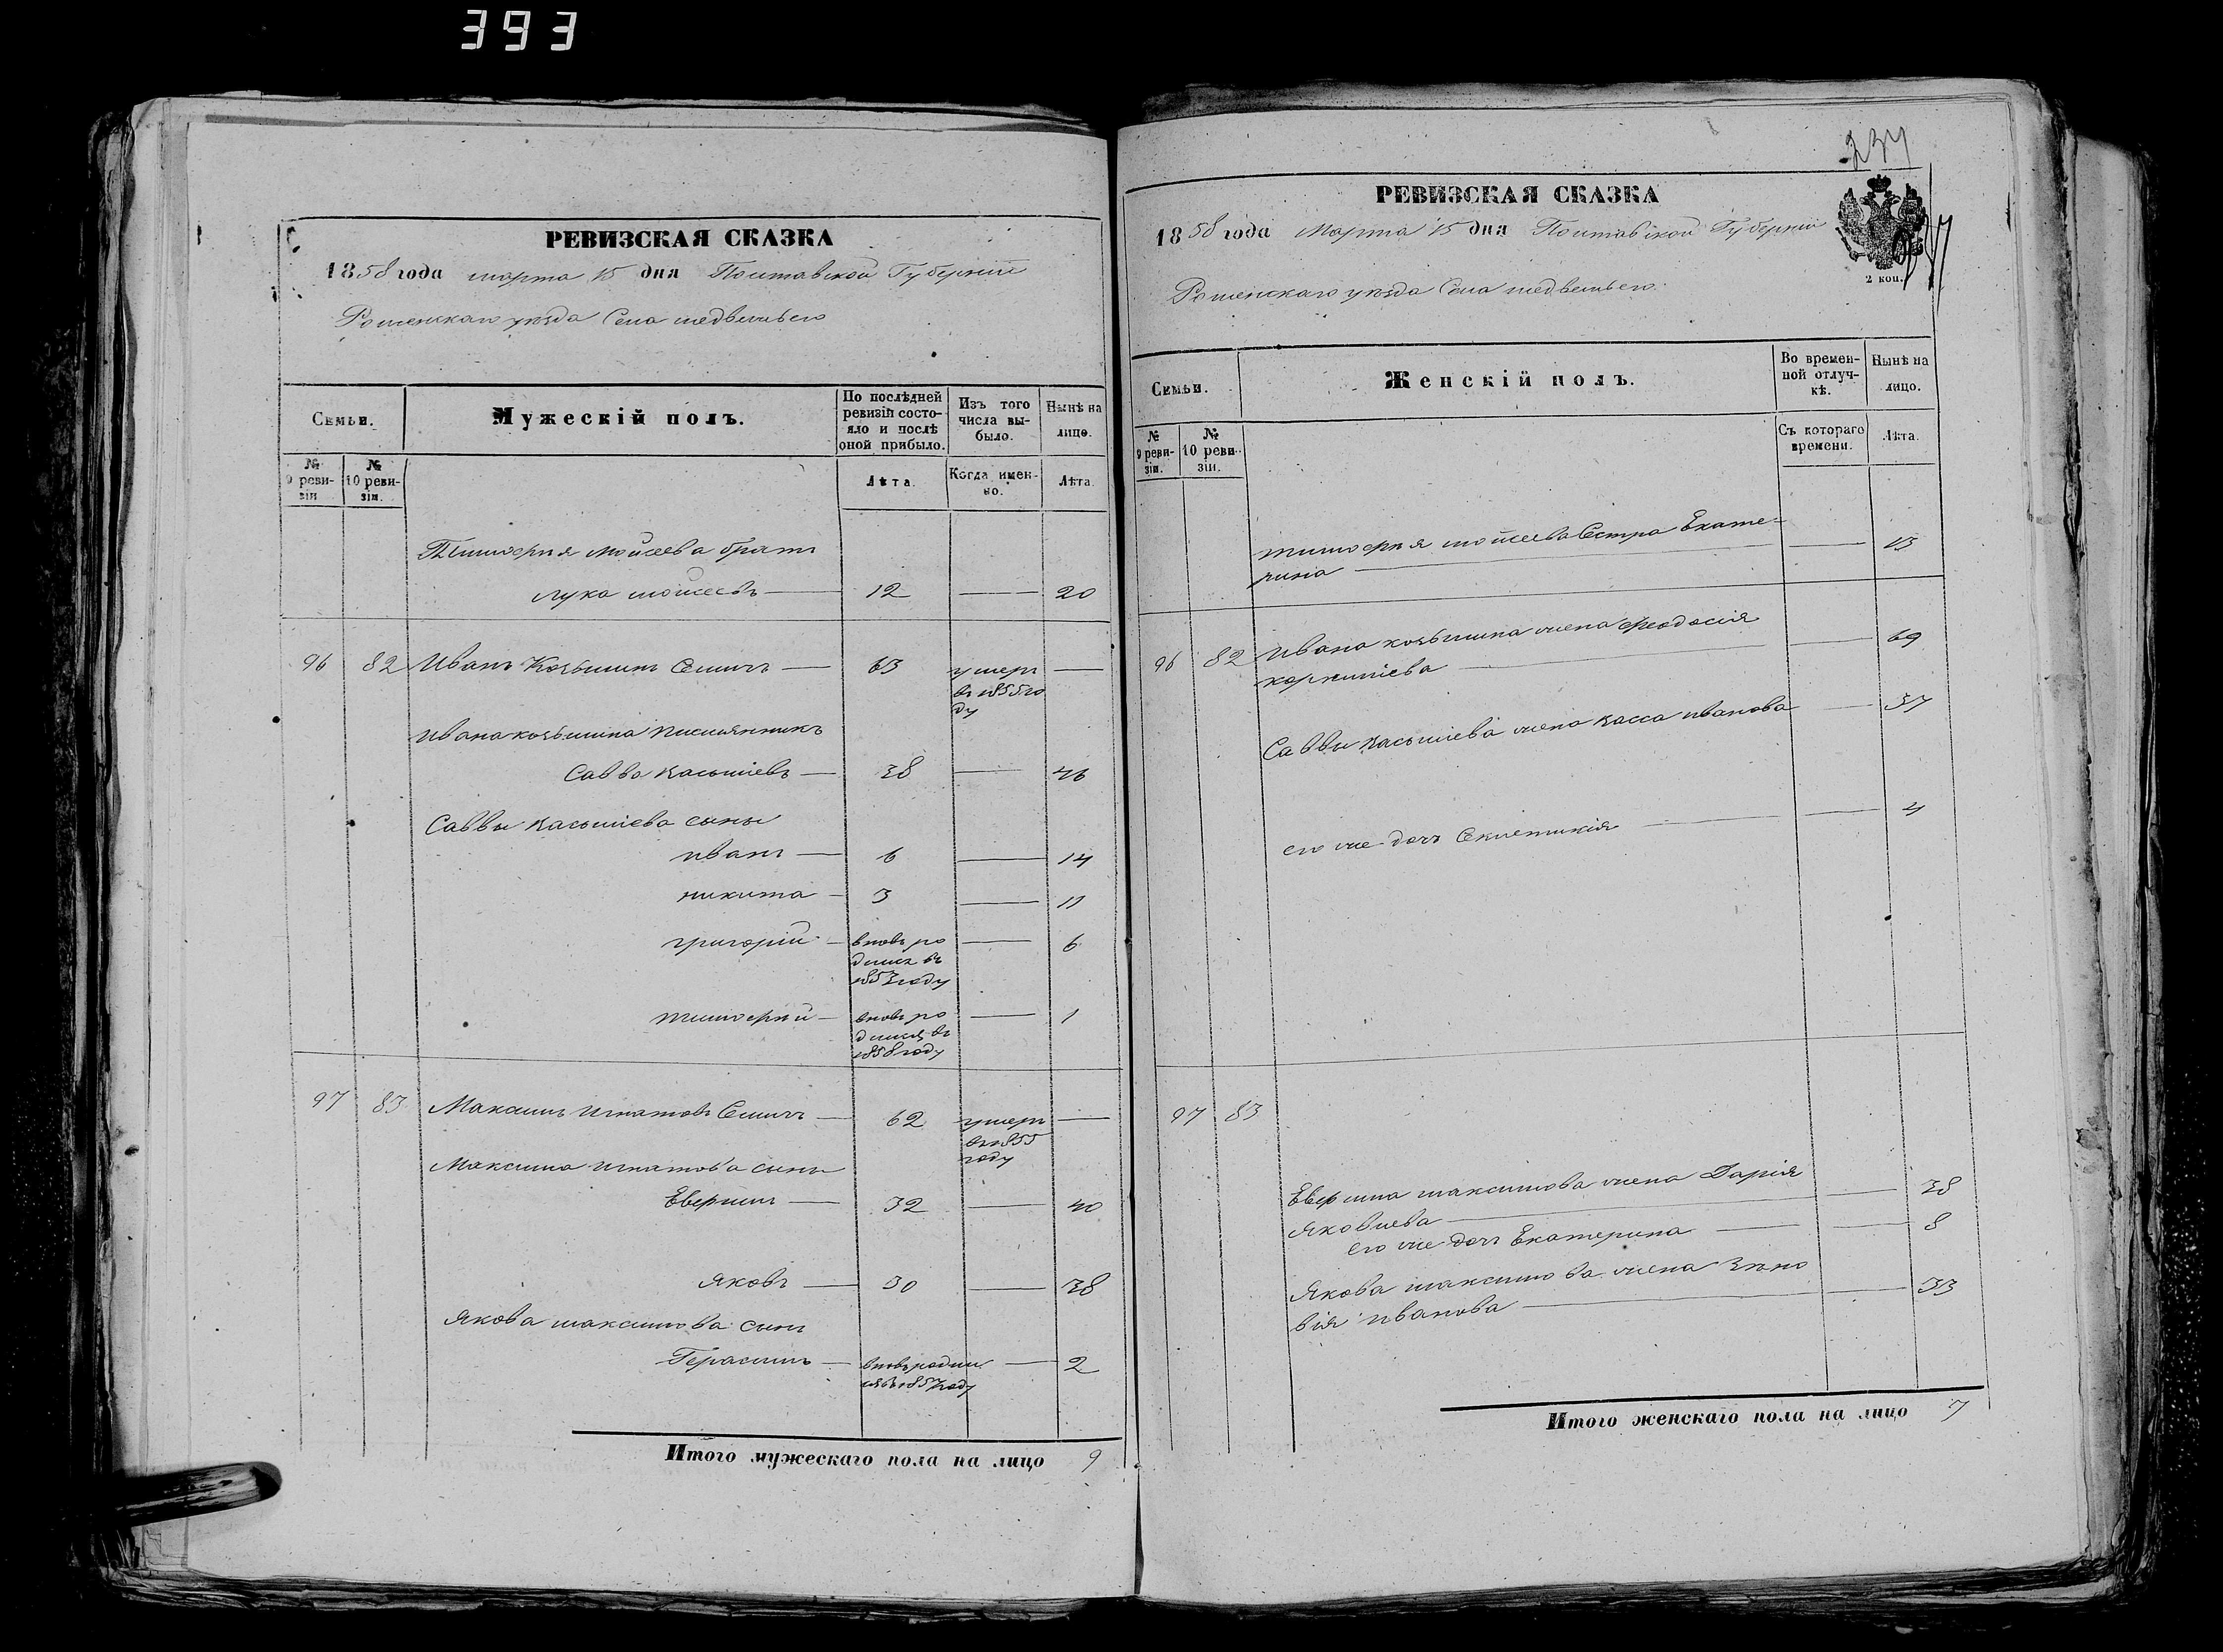 393
РЕВИЗСКАЯ СКАЗКА
1858 года марта 15 дня Полтавской Губернии
Роменскаго уезда Села медвежьего
Семьи.
Мужескій полъ.
По послѣдней ревизіи состояло и послѣ оной прибыло.
Изъ того числа выбыло.
Нынѣ на лицо.
№ 9 ревизіи
№ 10 ревизіи.
Лѣта.
Когда именно.
Лѣта.
Тимофея Мойсеева братъ
лука мойсеевъ 12 20
96 82 Иванъ Козьминъ 63 умеръ
въ 1855 го
ду
Ивана козьмина
Савва 38 46
Саввы сыны
иванъ 6 14
никита 3 11
григорий вновь ро 6
дился въ
году
тимофей вновь ро 1
дился въ
1858 году
97 83 Максимъ игнатовъ 62 умеръ
въ 1855
году
Максима игнатова сыны
32 40
яковъ 30 38
якова максимова сынъ
Герасимъ вновь родил 2
ся въ 1857 году
Итого мужескаго пола на лицо 9
234
РЕВИЗСКАЯ СКАЗКА
1858 года Марта 15 дня Полтавской Губернии
2 коп.
Роменскаго уезда Села медвежьего
Семьи.
Женскій полъ.
Во временной отлучкѣ.
Нынѣ на лицо.
№ 9 ревизіи.
№ 10 ревизіи.
Съ котораго времени.
Лѣта.
тимофея мойсеева Сестра Екате-
рина 15
96 82 Ивана козьмина жена феодосія
69
Саввы жена иванова 37
его же дочь 4
97 83
максимова жена Дарія
Яковлева 38
его же дочь Екатерина 8
Якова максимова жена Зино
вія иванова 33
Итого женскаго пола на лицо 7